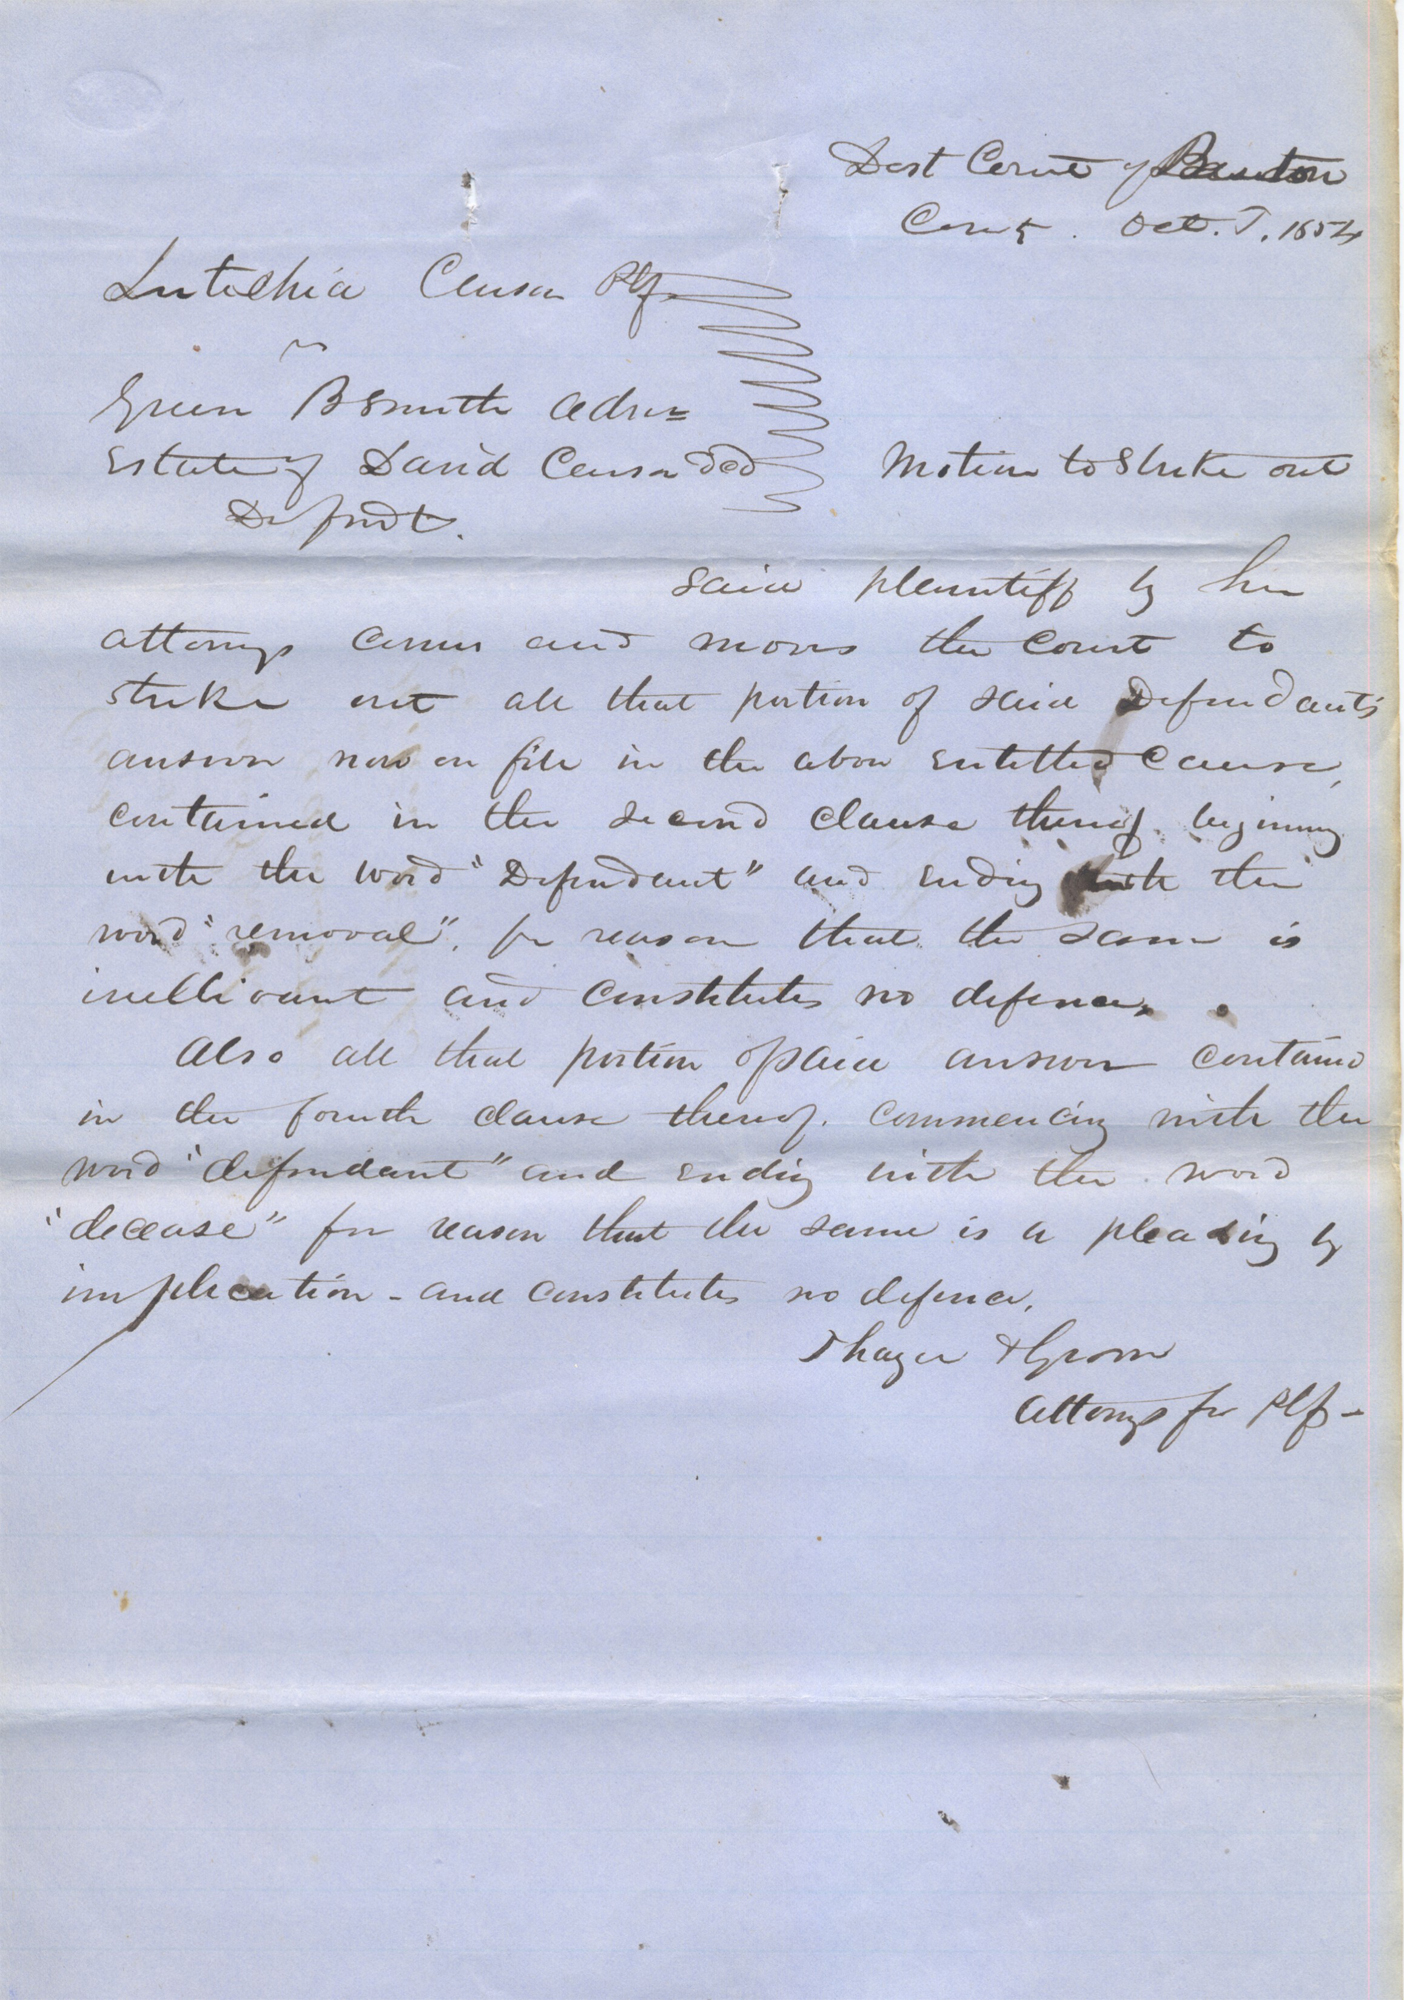 Dist Court of Benton
County. Oct. T. 1854
Lutishia Censor Plf
vs
Green B Smith Admr
Estate of David Censor Decd
Defendt.
Motion to Strike out
Said plaintiff by her
attornys comes and moves the Court to
strike out all that portion of said Defendants
answer now on file in the above entitled Cause,
contained in the second clause thereof. begining
with the word "Defendant" and ending with the
word "removal". for reason that the same is
irrellivant and constitutes no defence.
Also all that portion of said answer contained
in the fourth clause thereof. commencing with the
word "defendant" and ending with the word
"decease" for reason that the same is a pleading by
implication - and constitutes no defence.
Thayer &
Attornys for Plf -